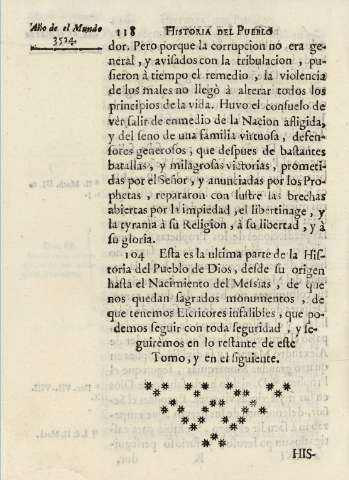 Año de el Mundo
3524.
118 HISTORIA DEL PUEBLO
dor. Pero porque la corrupcion no era ge-
neral, y avisados con la tribulacion, pu-
sieron à tiempo el remedio, la violencia
de los males no llegò à alterar todos los
principios de la vida. Huvo el consuelo de
vèr salir de enmedio de la Nacion afligida,
y del seno de una familia virtuosa, defen-
sores generosos, que despues de bastantes
batallas, y milagrosas victorias, prometi-
das por el Señor, y anunciadas por los Pro-
phetas, repararon con lustre las brechas
abiertas por la impiedad, el libertinage, y
la tyrania à su Religion, à su libertad, y à
su gloria.
104 Esta es la ultima parte de la His-
toria del Pueblo de Dios, desde su origen
hasta el Nacimiento del Messias, de que
nos quedan sagrados monumentos, de
que tenemos Escritores infalibles, que po-
demos seguir con toda seguridad, y se-
guirèmos en lo restante de este
Tomo, y en el siguiente.
HIS-